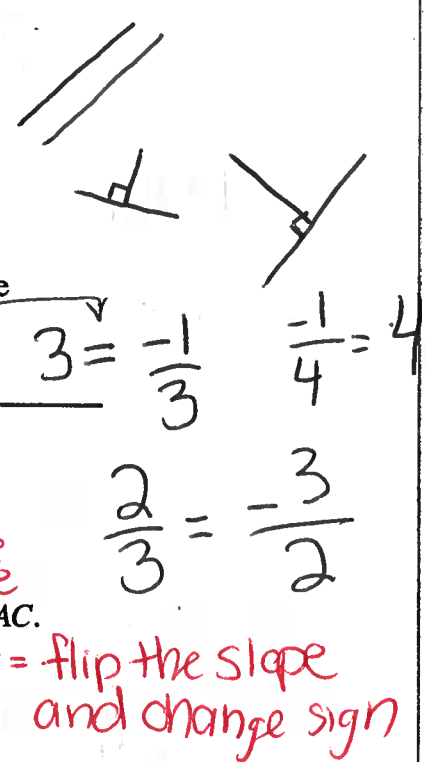 e
3 = -1/3
-1/4 = 4
2/3 = -3/2
e
AC.
= flip the slope
and change sign